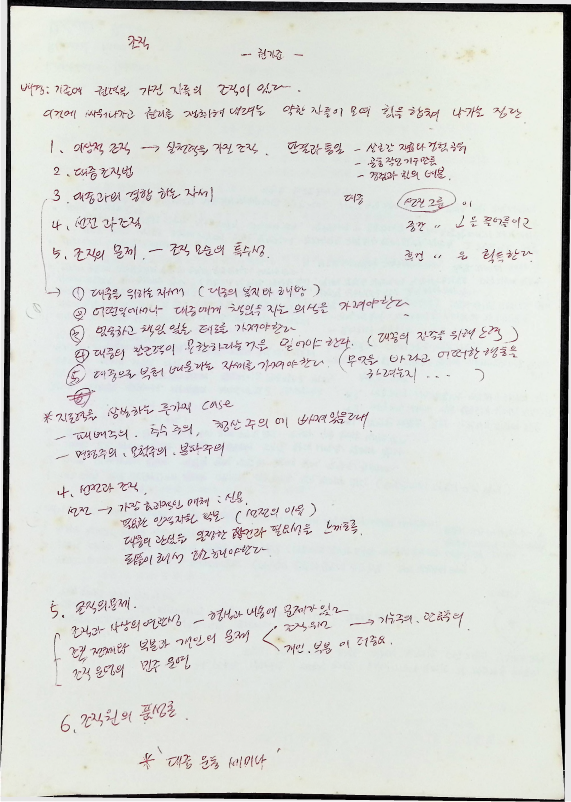 조직
배경: 기존에 권력을 가진 지금의 조직이 있다.
이것에 싸워나가고 권리를 쟁취해 내려는 약한 자들이 모여 힘을 합하여 나가는 집단
1. 이상적 조직 → 실천력을 가진 조직. 판결과 통일 - 상호간
- 경험과 힘의
2. 대중조직법
3. 대중과의 결합 하는 자세 대중 선진그룹 이
4. 선전과 조직 중간 〃 을 끌어올리고
5. 조직의 문제. - 조직 모순의 특수성. 후진 〃 은 획득한다.
① 대중을 위하는 자세 (대중의 복지와 해방)
② 어떤일에서나 대중에게 책임을 지는 의식을 가져야한다
③ 성실하고 책임 있는 태도를 가져야한다
④ 대중의 창조력이 무한하다는것을 믿어야 한다. (대중의 진출을 위해 노력)
⑤ 대중으로 부터 배운다는 자세를 가져야한다 (무엇을 바라고 어떠한 행동을
하려는지 ... )
* 지도력을 상실하는 몇가지 case
- 패배주의. 특수주의, 청산주의에 빠져있을때
- 명령주의. 모험주의. 분파주의
4. 선전과 조직.
선전 → 가장 효과적인 매체 : 신문.
필요한 인적자원 확보 (선전의 이유)
대중의 관심을 조장한 발전과 필요성을 느끼도록
되풀이 해서 강조해야한다.
5. 조직의 문제.
조직과 사상의 연관성 - 형식과 내용에 문제가 있고
조직 전체와 부분과 개인의 문제 < 조직위만 → 기능주의. 관료주의
개인. 부분이 더중요.
조직 운영의 민주 운영
6. 조직원의 품성론.
* '대중 운동 세미나'